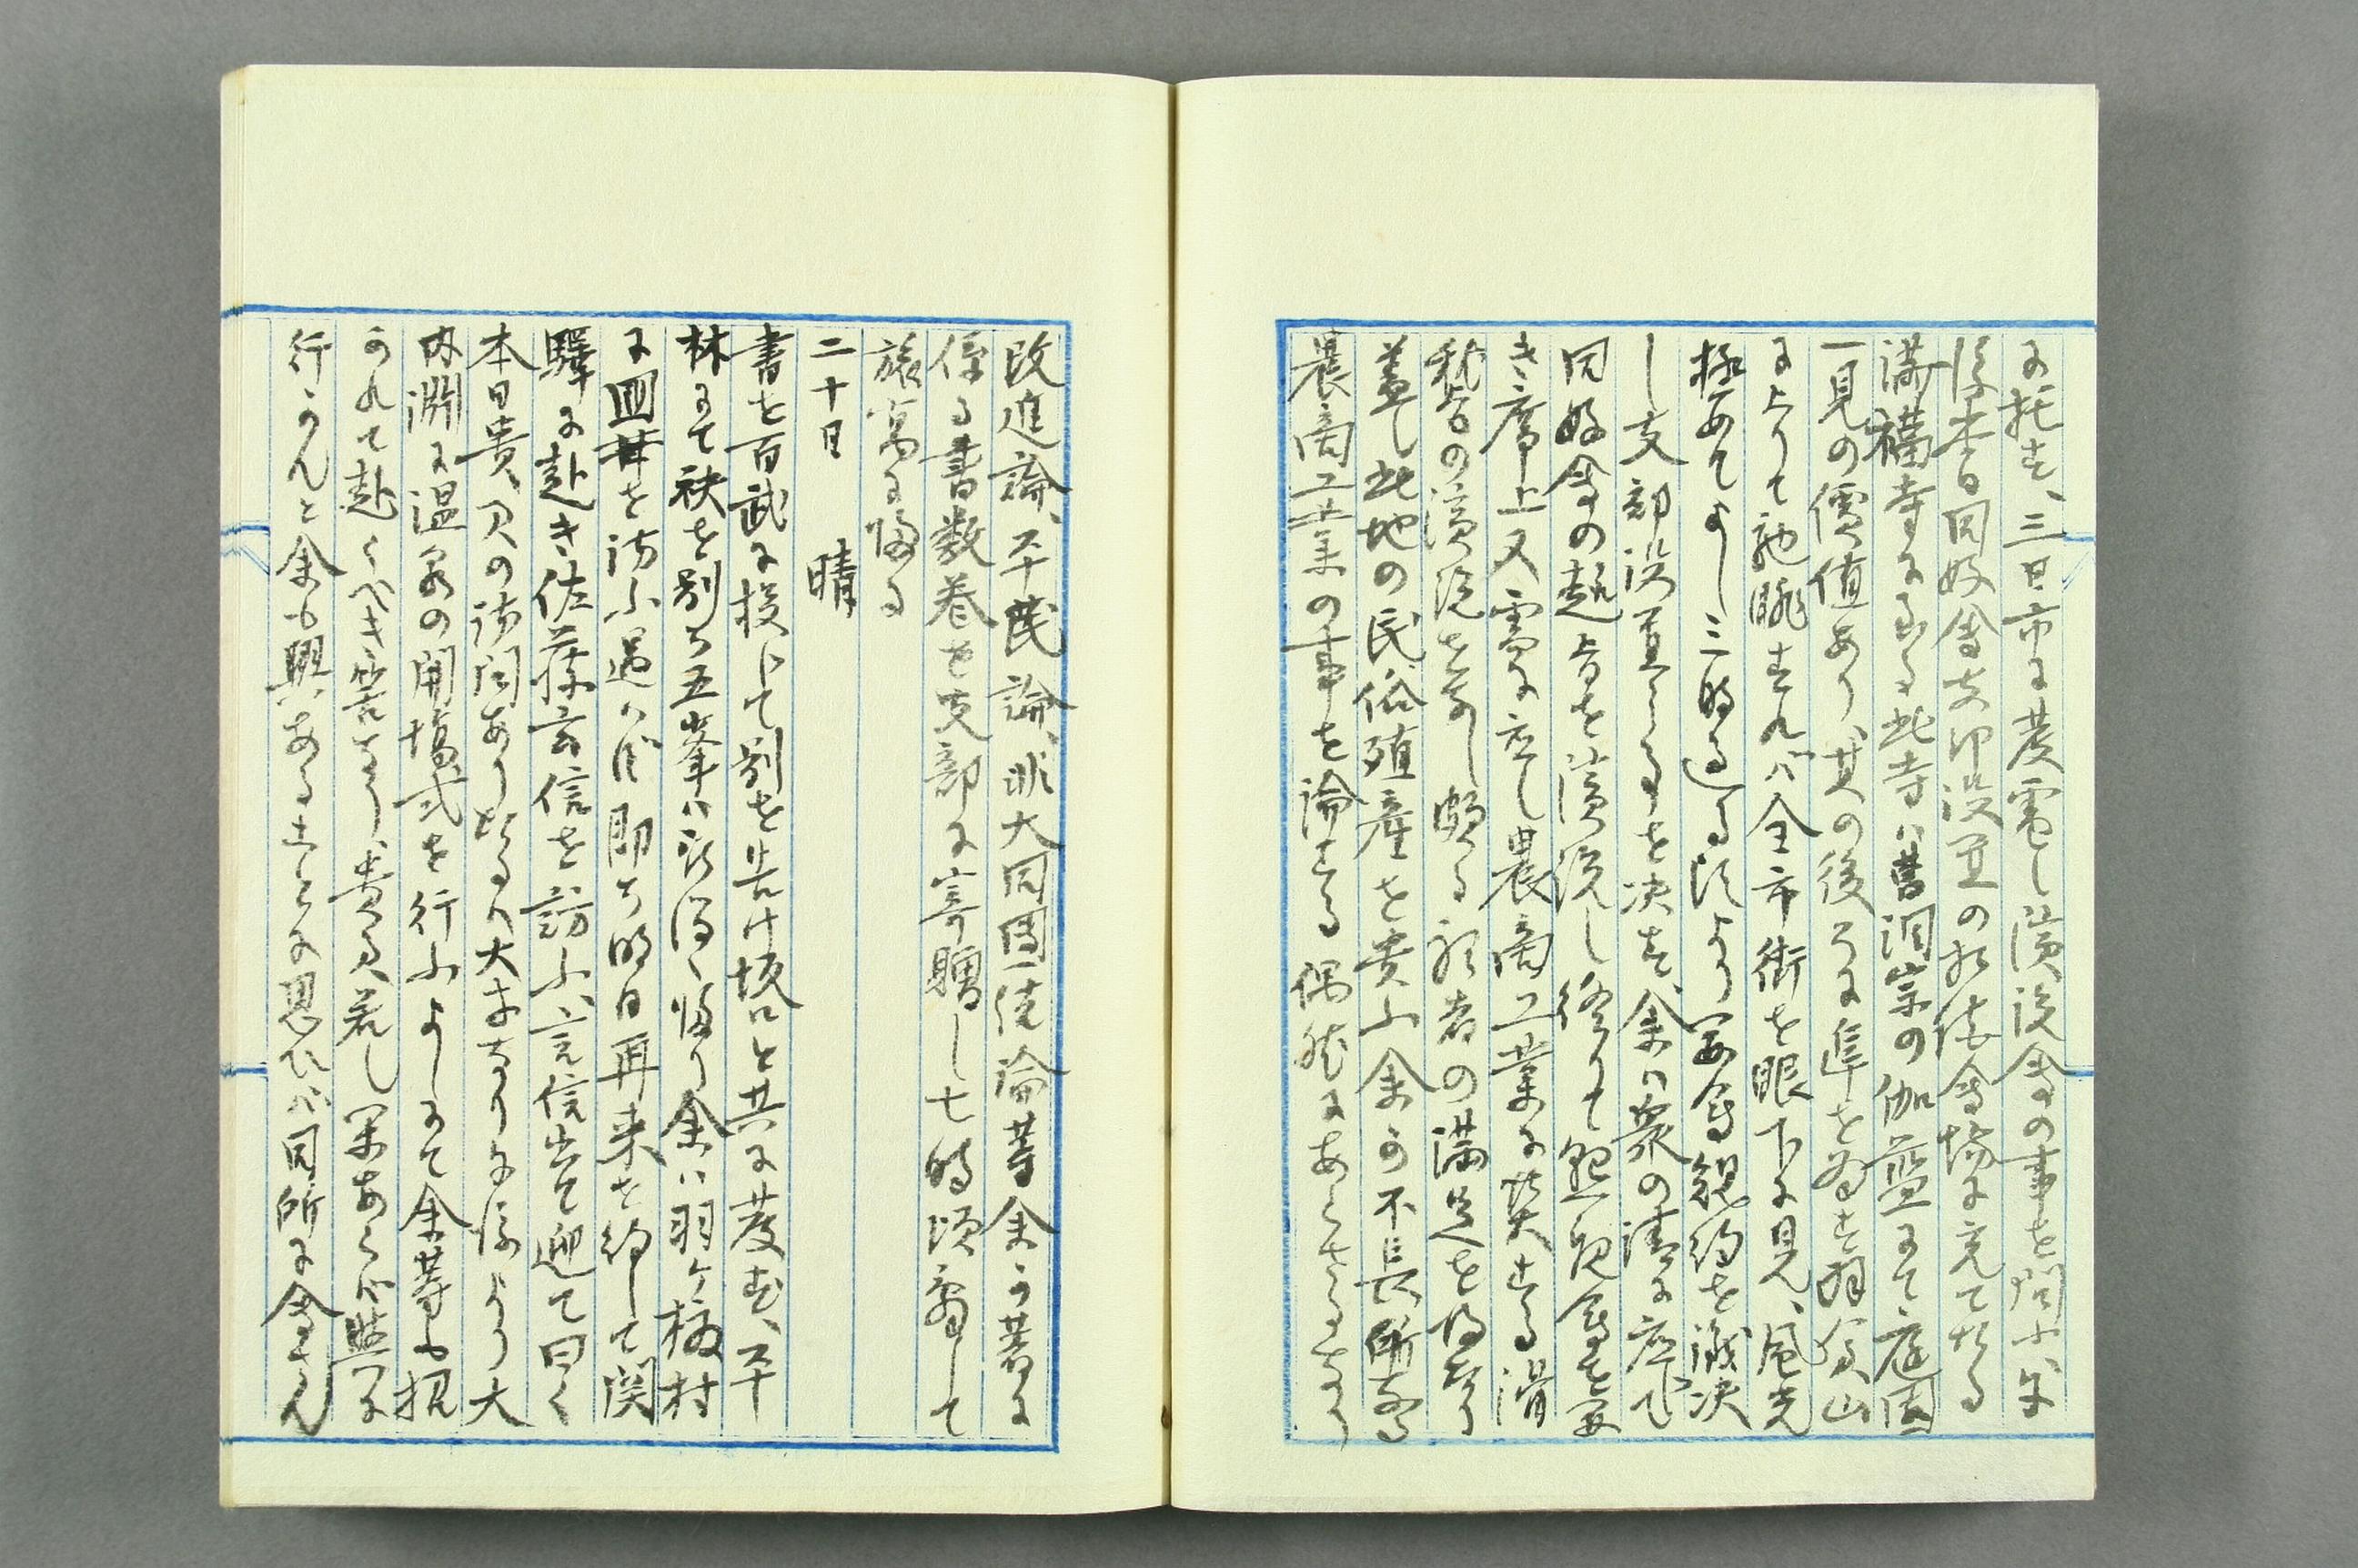 に托す、三日市に発電し演説会の事を問ふ午
後本日同好会支部設置の相談会場に充てたる
満福寺に至る此寺ハ曹洞宗の伽藍にて、庭園
一見の價値あり、其の後ろに阜を為す羽黒山
に上りて馳眺すれバ全市街を眼下に見、風光
極めてよし三時過る頃より宴会規約を議決
し支部設置することを決す、余ハ衆の請に応じて
同好会の趣旨を演説し終りて懇親会を宴
き席上又需に応し農商工業に関する滑
稽の演説を為し頗る聴者の満足を得たり
蓋し此地の民俗殖産を貴ふ余の不長所なる
農商工業の事を論する偶然にあらさるなり
改進論、平民論、非大同団結論等余の著に
係る書数巻を支部に寄贈し七時頃辞して
旅寓に帰る
二十日　晴
書を百武に投じて別を告け坂口と共に発す、平
林にて袂を別ち五峯ハ新潟へ帰り余ハ羽ヶ榎村
に皿井を訪ふ遇ハず即ち明日再来を約して関
驛に赴き佐藤言信を訪ふ、言信出て迎て曰く
本日貴兄の訪問あり
内淵に温泉の開場式を行ふよしにて余等も招
かれて赴くべき筈なり、貴兄若し閑あらバ共に
行かんと余も興あることに思ひバ同所に会せん